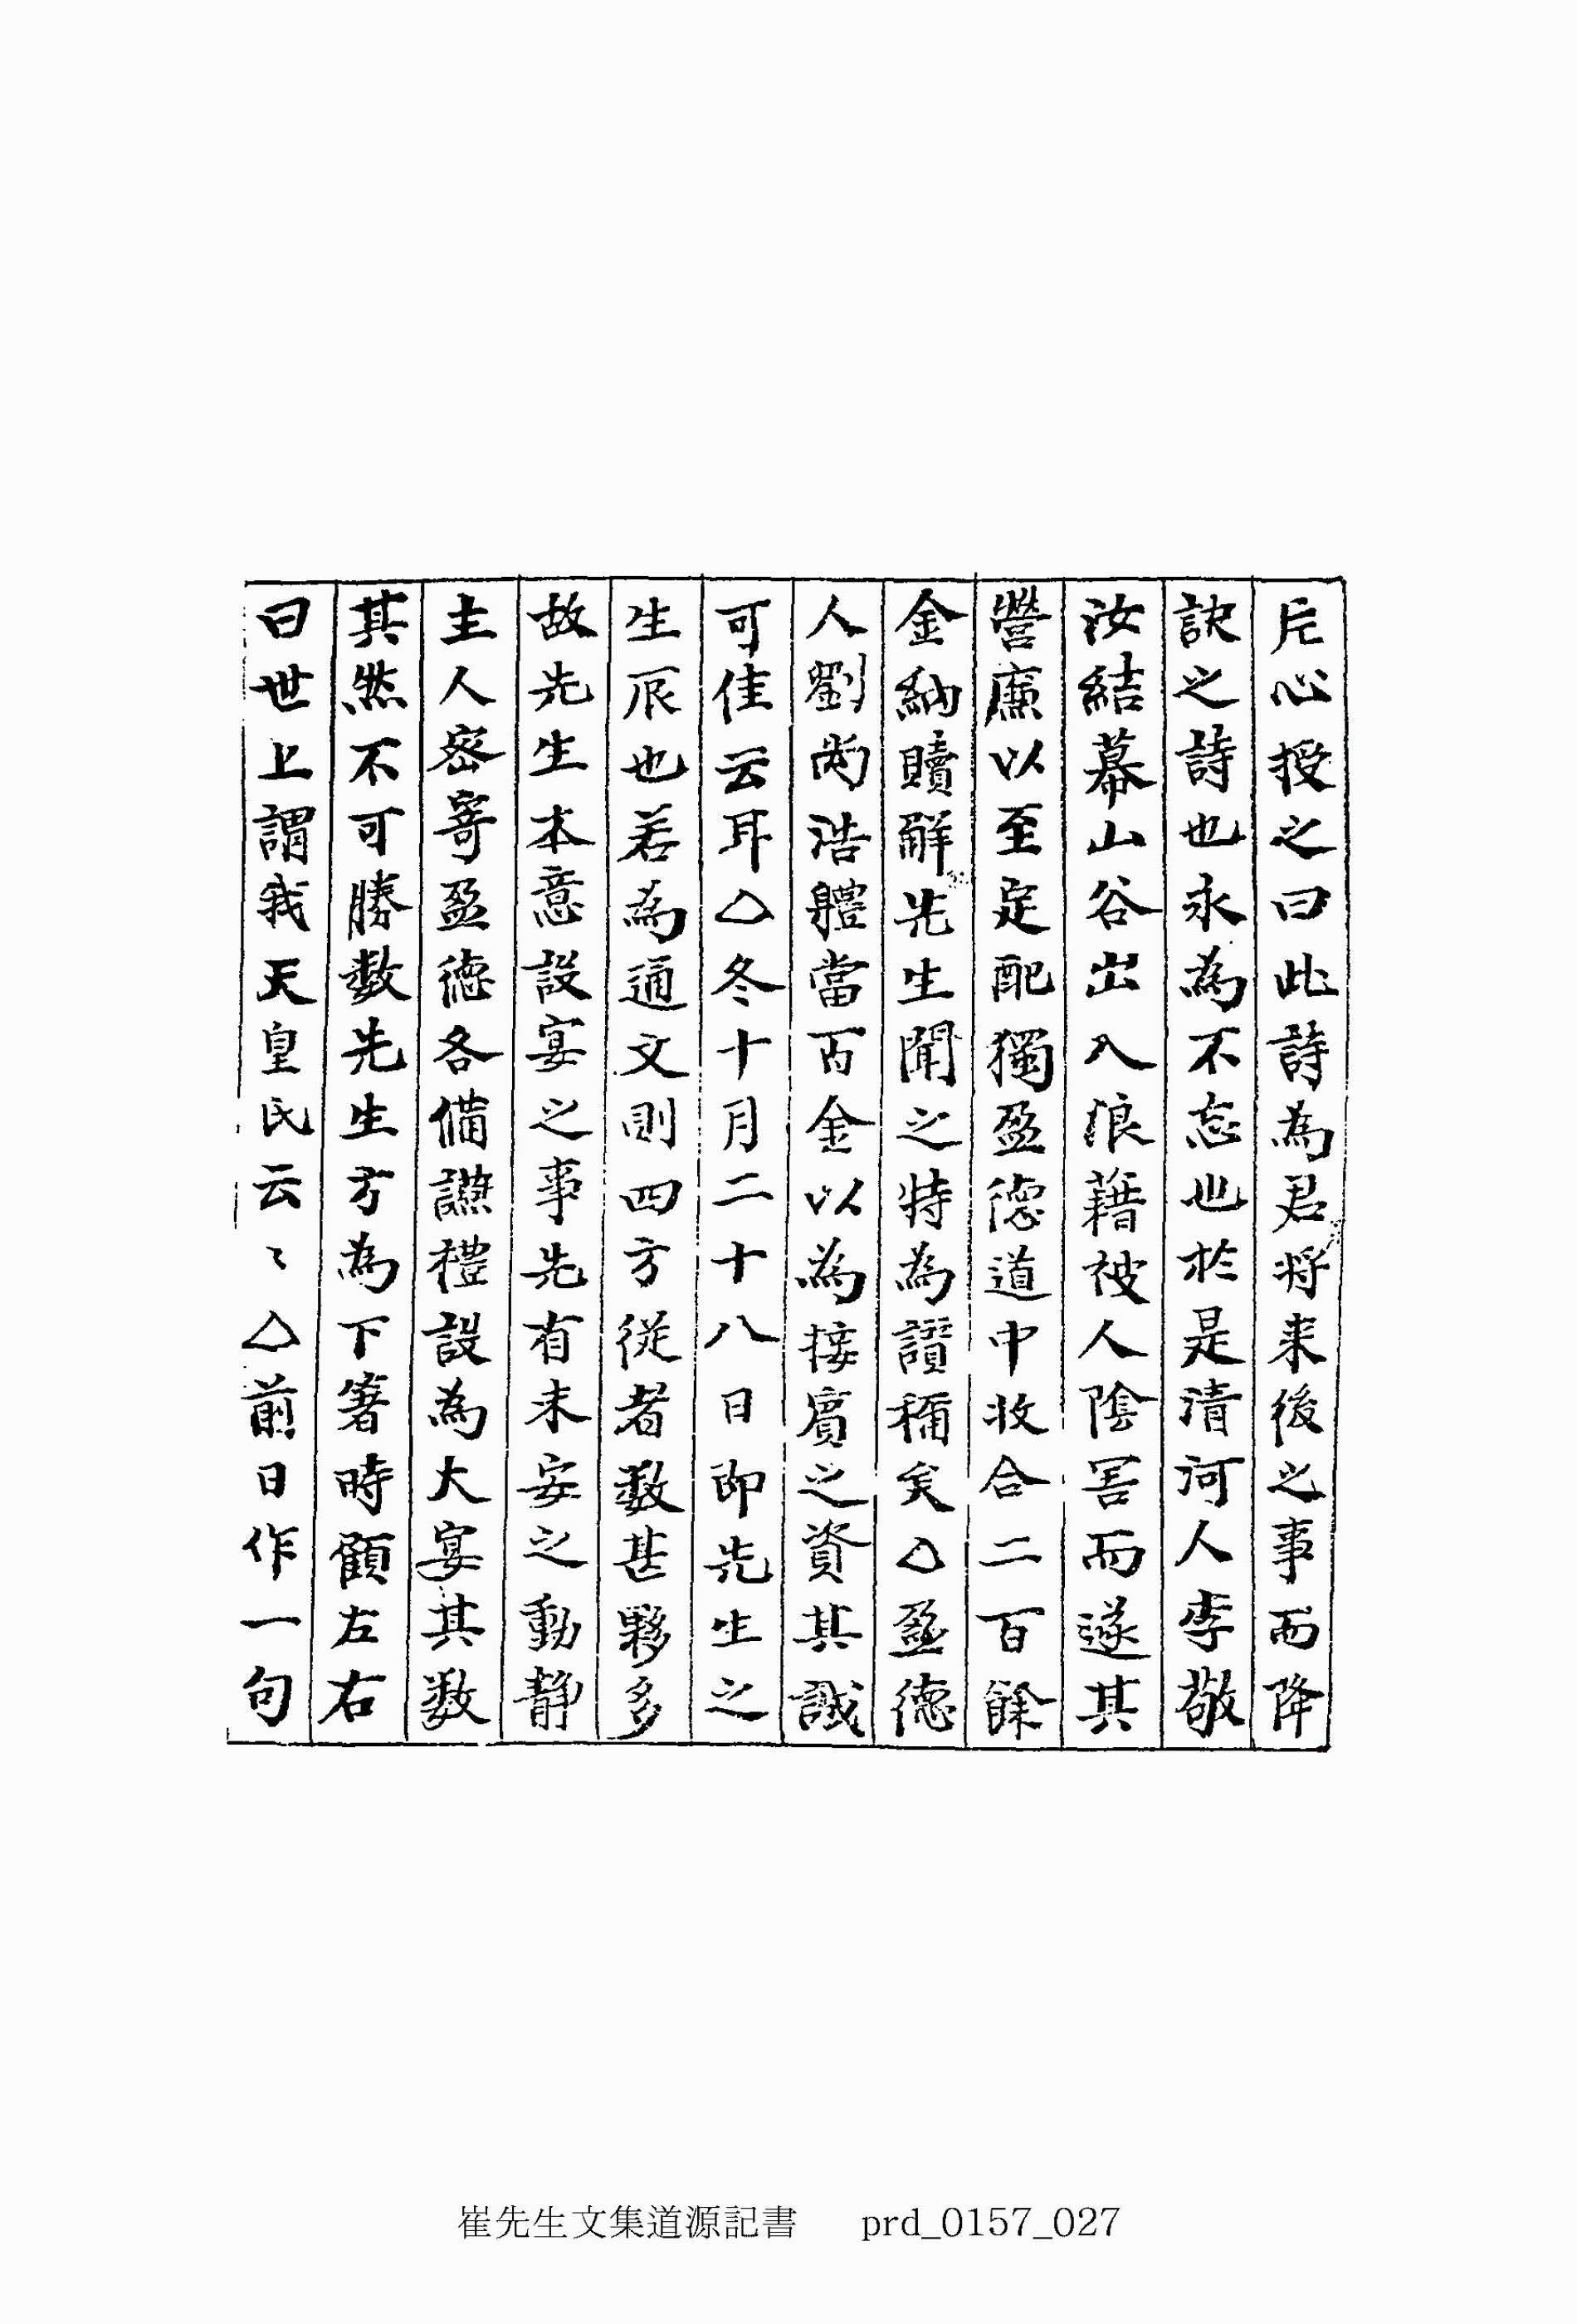 片心授之曰此詩為君將来後之事而降
訣之詩也永為不忘也於是清河人李敬
汝結幕山谷出入浪藉被人陰害而遂其
營廉以至定配獨盈德道中收合二百餘
金納贖觧先生聞之特為讃稱矣△盈德
人劉尚浩軆當百金以為接賓之資其誠
可佳云耳△冬十月二十八日卽先生之
生辰也若為通文則四方從者数甚夥多
故先生本意設宴之事先有未安之動静
主人密寄盈德各備讌禮設為大宴其数
其然不可勝數先生方為下箸時顧左右
曰世上謂我天皇氏云〻△前日作一句
崔先生文集道源記書 prd_0157_027